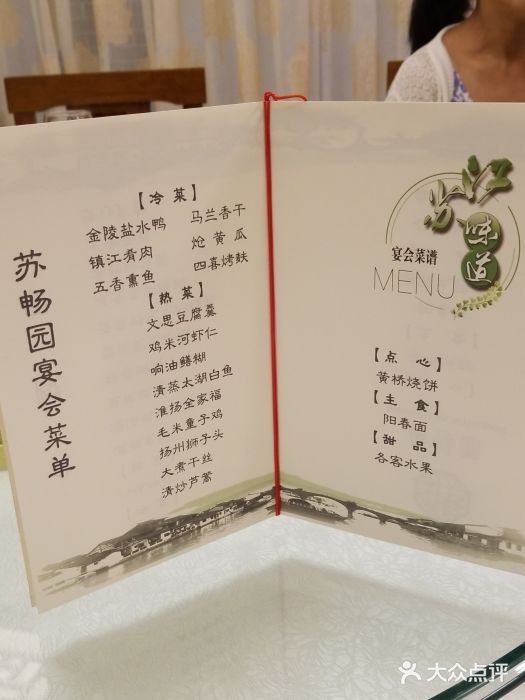 苏畅园宴会菜单
【冷菜】
金陵盐水鸭 马兰香干
镇江肴肉 炝黄瓜
五香熏鱼 四喜烤麸
【热菜】
文思豆腐羹
鸡米河虾仁
响油鳝糊
清蒸太湖白鱼
淮扬全家福
毛米童子鸡
扬州狮子头
大煮干丝
清炒芦蒿
江苏味道
宴会菜谱
MENU
【点心】
黄桥烧饼
【主食】
阳春面
【甜品】
各客水果
大众点评